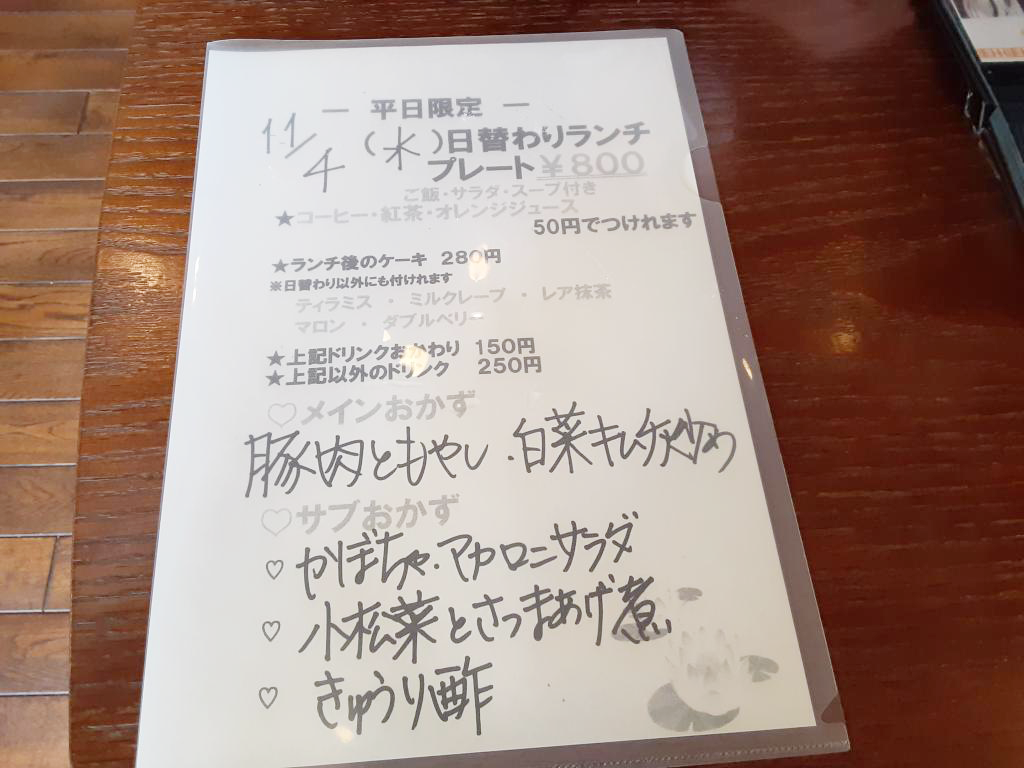 ― 平日限定 ―
11/4 (水)日替わりランチ
プレート ¥800
ご飯・サラダ・スープ付き
★コーヒー・紅茶・オレンジジュース
50円でつけれます
★ランチ後のケーキ 280円
※日替わり以外にも付けれます
ティラミス ・ ミルクレープ ・ レア抹茶
マロン ・ ダブルベリー
★上記ドリンクおかわり 150円
★上記以外のドリンク 250円
♡メインおかず
豚肉ともやし・白菜キムチ炒め
♡サブおかず
♡ かぼちゃ・マカロニサラダ
♡ 小松菜とさつまあげ煮
♡ きゅうり酢